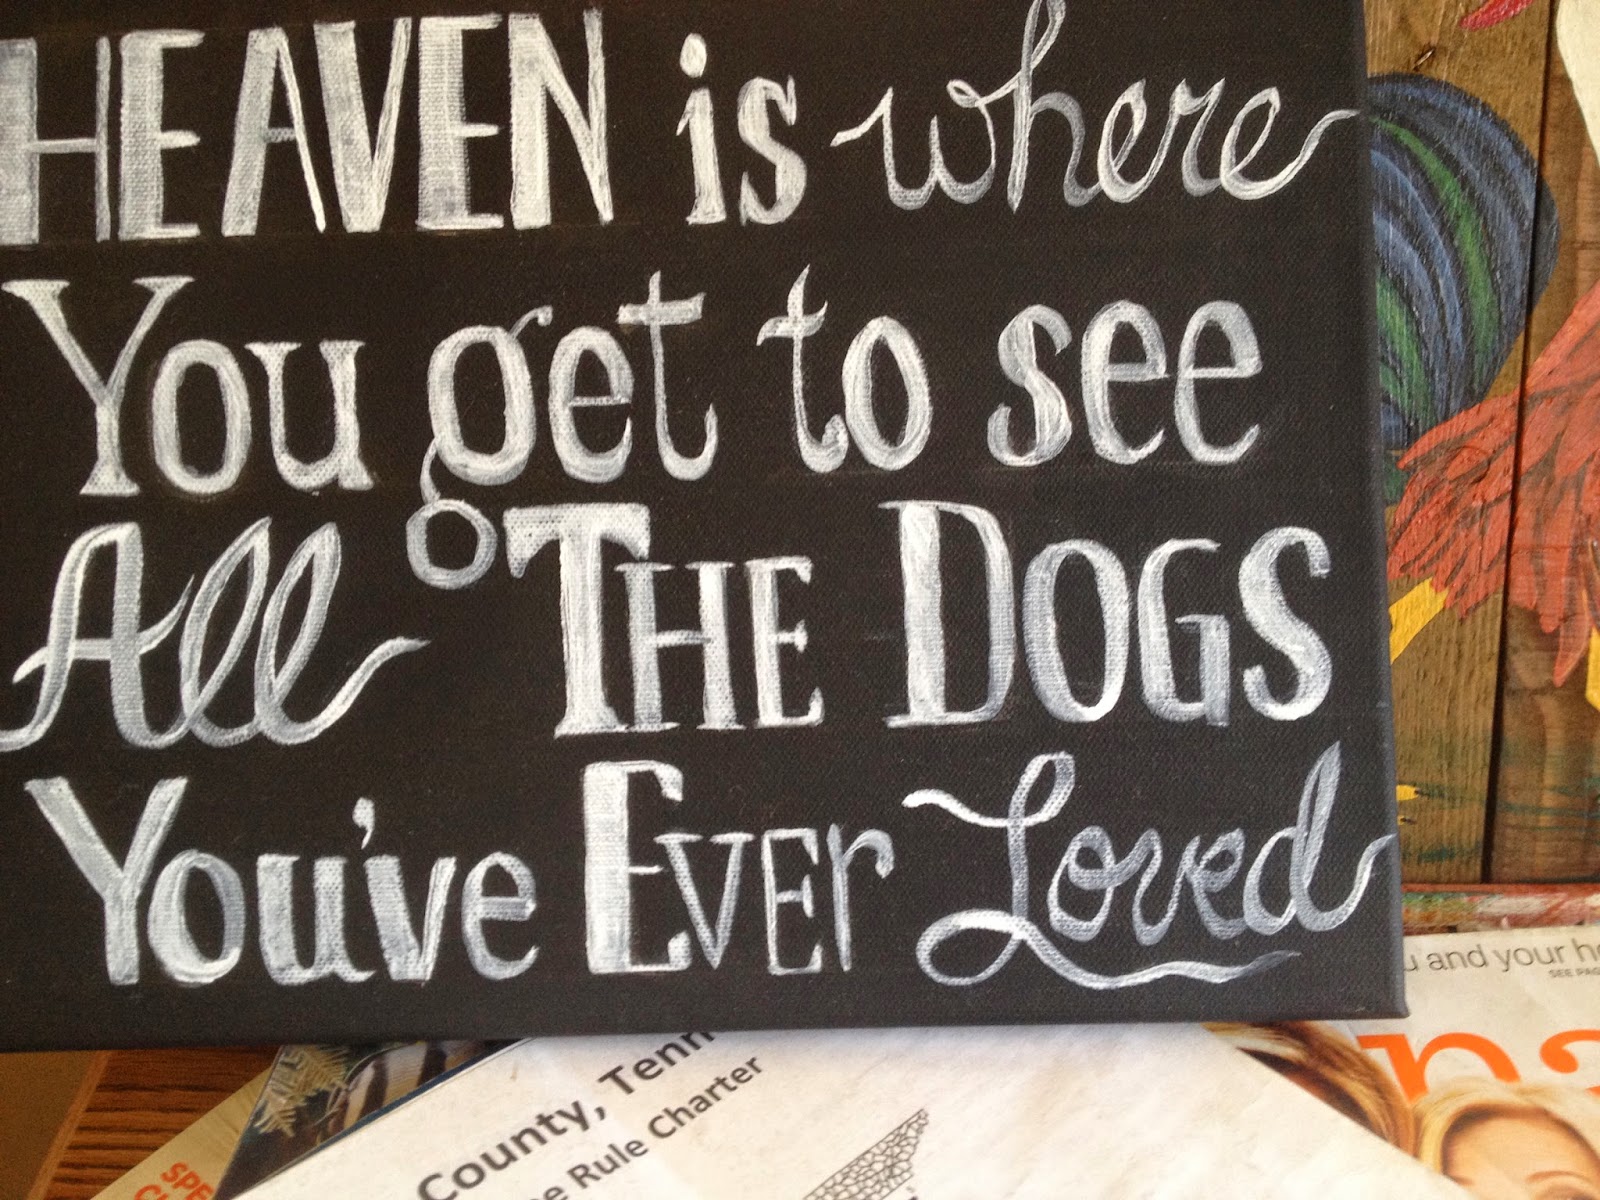 HEAVEN is where
You get to see
All THE DOGS
You've EVEr Loved
and your
SEE
County,
Rule Charter